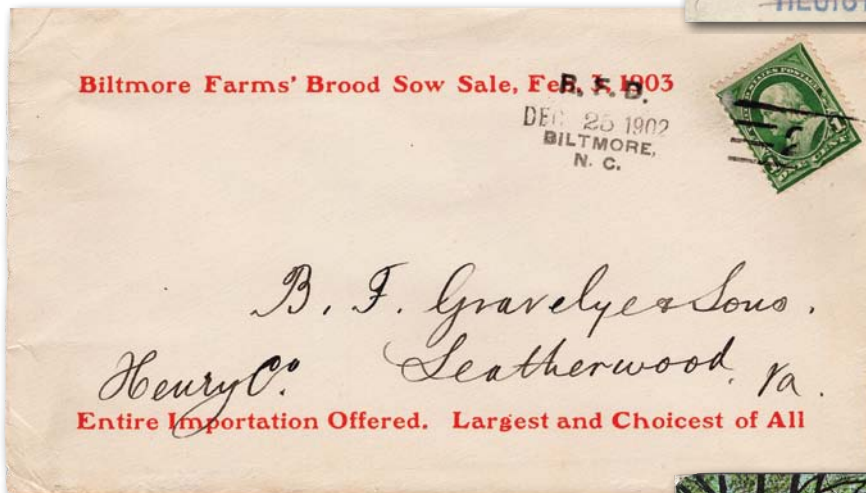 Biltmore Farms' Brood Sow Sale, Feb. 3, 1903
R. F. D.
DEC 25 1902
BILTMORE,
N. C.
ONE CENT
B. F. Gravely & Sons.
Henry Co. Leatherwood, Va.
Entire Importation Offered. Largest and Choicest of All